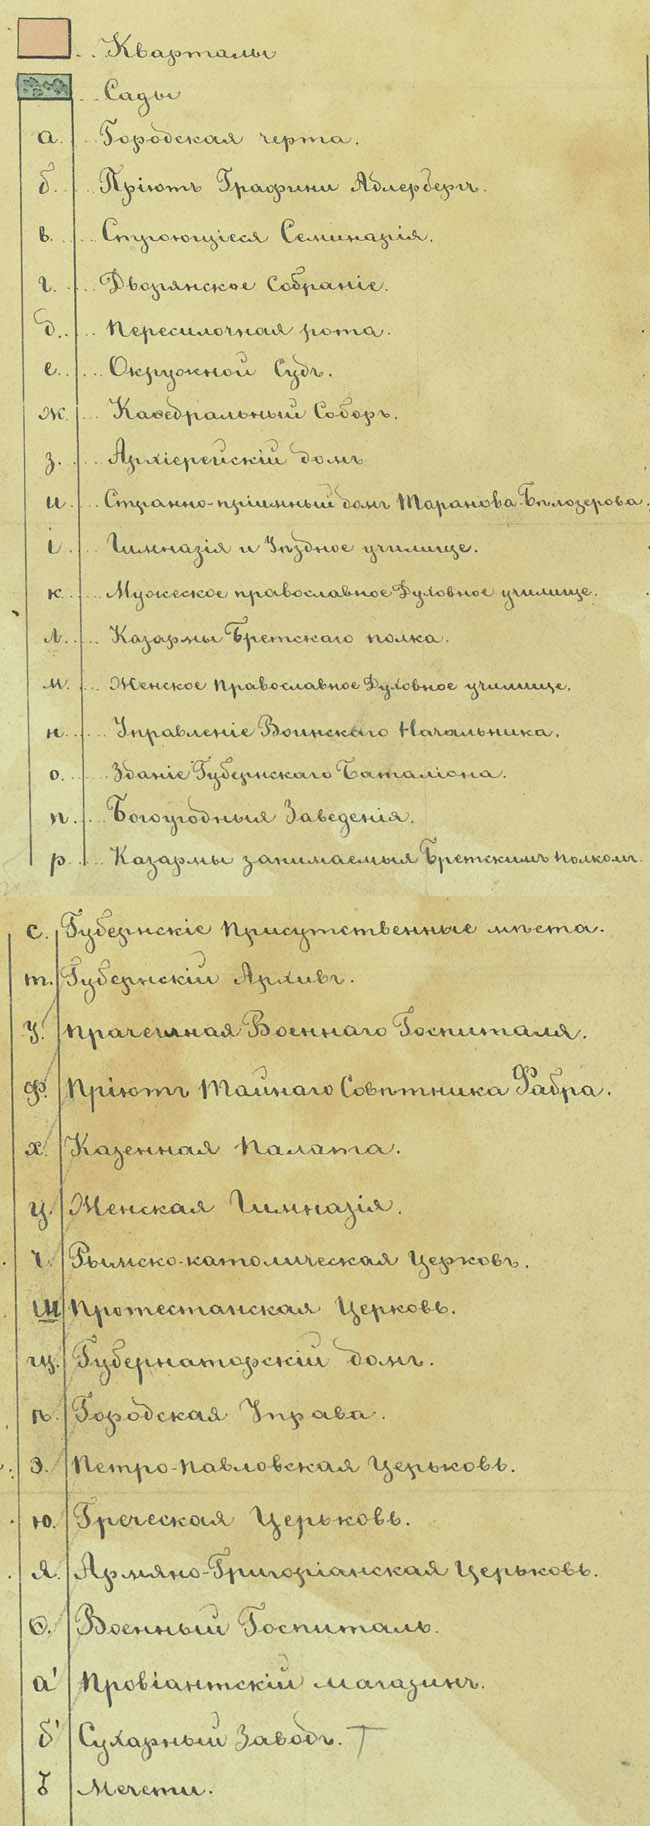 Кварталы
Сады
а. Городская черта.
б. Пріютъ Графини Адлербергъ.
в. Строющіеся Семинарія.
г. Дворянское Собраніе.
д. Пересилочная рота.
е. Окружной Судъ.
ж. Каѳедральный Соборъ.
з. Архіерейскій домъ
и. Странно-пріимный домъ Таранова-Бѣлозерова.
і. Гимназія и Уѣздное училище.
к. Мужеское православное Духовное училище.
л. Казармы Бретскаго полка.
м. Женское Православное Духовное училище.
н. Управленіе Воинскаго Начальника.
о. Зданіе Губернскаго Баталіона.
п. Богоугодныя Заведенія.
р. Казармы занимаемыя Бретскимъ полкомъ.
с. Губернскіе Присутственные мѣста.
т. Губернскій Архивъ.
у. Прачешная Военнаго Госпиталя.
ф. Пріютъ Тайнаго Совѣтника Фабра.
х. Казенная Палата.
ц. Женская Гимназія.
ч. Рымско-католическая Церковъ.
ш Протестанская Церковь.
щ. Губернаторскій домъ.
ъ. Городская Управа.
э. Петро-Павловская Церьковь.
ю. Греческая Церьковь.
я. Армяно-Григоріанская Церьковь.
ѳ. Военный Госпиталь.
а' Провіантскій магазинъ.
б' Сухарный Заводъ.
Мечети.